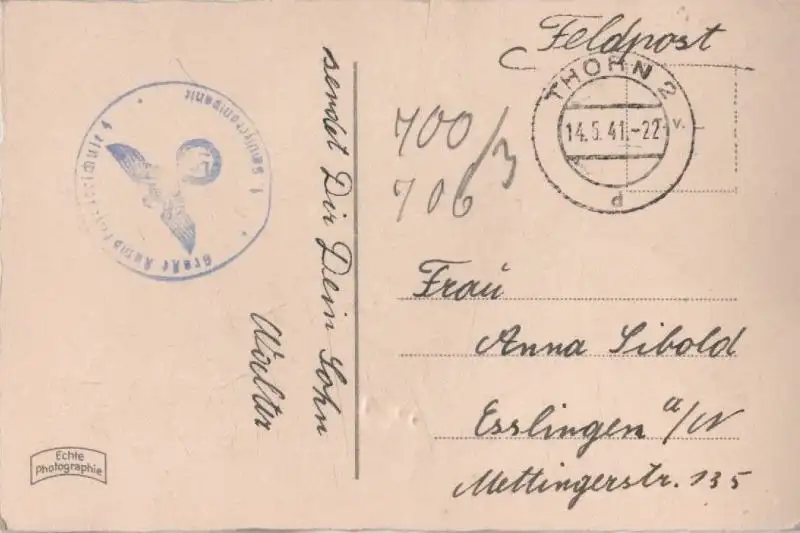 Feldpost
THORN 2
14.5.41.-22
v.
d
700/3
706
sendet Dir Dein Sohn
Walter
Frau
Anna Sibold
Esslingen a/N
Mettingerstr. 135
Echte
Photographie